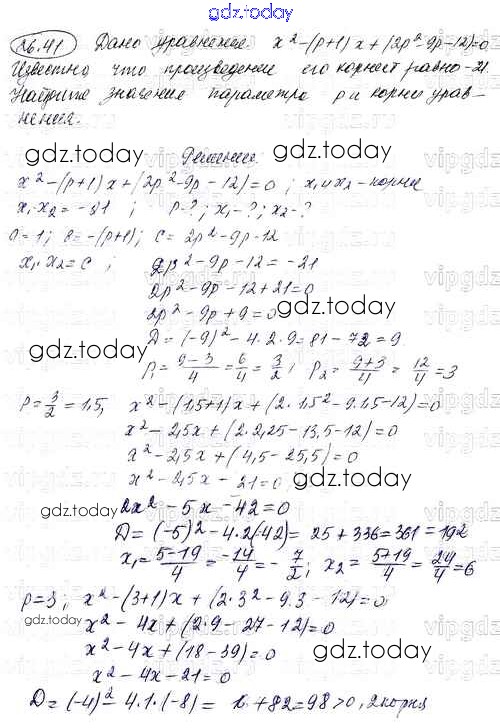 gdz.today
26.41 Дано уравнение x² - (p+1)x + (2p² - 9p - 12) = 0
Известно что произведение его корней равно -21.
Найдите значение параметра p и корни урав-
нения.
Решение.
gdz.today gdz.today
x² - (p+1)x + (2p² - 9p - 12) = 0; x₁ и x₂ - корни
x₁·x₂ = -21; p-?; x₁-?; x₂-?
a = 1; b = -(p+1); c = 2p² - 9p - 12
x₁·x₂ = c; 2p² - 9p - 12 = -21
gdz.today
2p² - 9p - 12 + 21 = 0
2p² - 9p + 9 = 0
D = (-9)² - 4·2·9 = 81 - 72 = 9
gdz.today
p₁ = (9-3)/4 = 6/4 = 3/2; p₂ = (9+3)/4 = 12/4 = 3
p = 3/2 = 1,5, x² - (1,5+1)x + (2·1,5² - 9·1,5 - 12) = 0
x² - 2,5x + (2·2,25 - 13,5 - 12) = 0
x² - 2,5x + (4,5 - 25,5) = 0
x² - 2,5x - 21 = 0
gdz.today gdz.today
2x² - 5x - 42 = 0
D = (-5)² - 4·2(-42) = 25 + 336 = 361 = 19²
x₁ = (5-19)/4 = -14/4 = -7/2; x₂ = (5+19)/4 = 24/4 = 6
p = 3; x² - (3+1)x + (2·3² - 9·3 - 12) = 0
gdz.today
x² - 4x + (2·9 - 27 - 12) = 0
x² - 4x + (18 - 39) = 0
gdz.today
x² - 4x - 21 = 0
D = (-4)² - 4·1·(-8) = 16 + 82 = 98 > 0, 2 корня